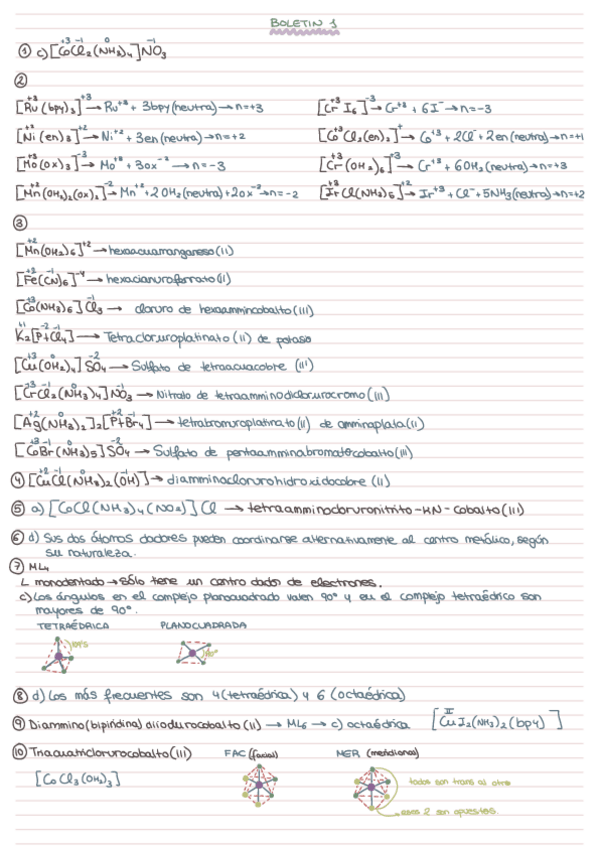 BOLETIN 1
① c) [CoCl₂(NH₃)₄]NO₃ +3 -1 0 -1
②
[Ru(bpy)₃]⁺³ → Ru⁺³ + 3bpy (neutra) → n=+3
[CrI₆]⁻³ → Cr⁺³ + 6I⁻ → n=-3
[Ni(en)₃]⁺² → Ni⁺² + 3en (neutra) → n=+2
[CoCl₂(en)₂]⁺ → Co⁺³ + 2Cl⁻ + 2en (neutra) → n=+1
[Mo(ox)₃]⁻³ → Mo⁺³ + 3ox⁻² → n=-3
[Cr(OH₂)₆]⁺³ → Cr⁺³ + 6OH₂ (neutra) → n=+3
[Mn(OH₂)₂(ox)₂]⁻² → Mn⁺² + 2OH₂ (neutra) + 2ox⁻² → n=-2
[IrCl(NH₃)₅]⁺² → Ir⁺³ + Cl⁻ + 5NH₃ (neutra) → n=+2
③
[Mn(OH₂)₆]⁺² → hexaacuamanganeso(II)
[Fe(CN)₆]⁻⁴ → hexacianuroferrato(II)
[Co(NH₃)₆]Cl₃ → cloruro de hexaammincobalto (III)
K₂[PtCl₄] → Tetracloruroplatinato (II) de potasio
[Cu(OH₂)₄]SO₄ → Sulfato de tetraacuacobre (II)
[CrCl₂(NH₃)₄]NO₃ → Nitrato de tetraamminodiclorurocromo (III)
[Ag(NH₃)₂]₂[PtBr₄] → tetrabromuroplatinato(II) de amminaplata(I)
[CoBr(NH₃)₅]SO₄ → Sulfato de pentaamminabromatocobalto (III)
④ [CuCl(NH₃)₂(OH)] → diamminoclorurohidroxidocobre (II)
⑤ a) [CoCl(NH₃)₄(NO₂)]Cl → tetraamminocloruronitrito-κN-cobalto (III)
⑥ d) Sus dos átomos dadores pueden coordinarse alternativamente al centro metálico, según
su naturaleza.
⑦ ML₄
L monodentado → sólo tiene un centro dador de electrones.
c) Los ángulos en el complejo planocuadrado valen 90° y en el complejo tetraédrico son
mayores de 90°.
TETRAÉDRICA PLANOCUADRADA
90°
⑧ d) Los más frecuentes son 4 (tetraédrica) y 6 (octaédrica)
⑨ Diammino(bipiridina)diiodurocobalto (II) → ML₆ → c) octaédrica [CuI₂(NH₃)₂(bpy)]
⑩ Triacuatriclorurocobalto (III) FAC (facial) MER (meridional)
[CoCl₃(OH₂)₃]
todos son trans al otro
esos 2 son opuestos.